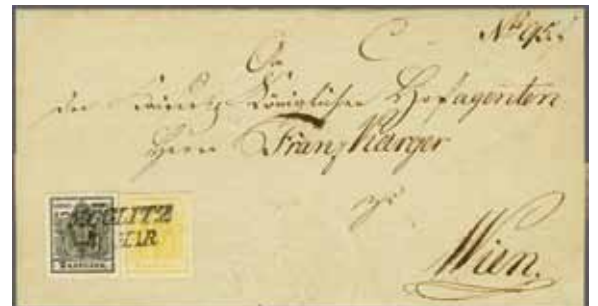 Nro 95.
An
den Kaiserl. Königlichen Hofagenten
Herrn Franz Karger
zu
Wien.
MAR